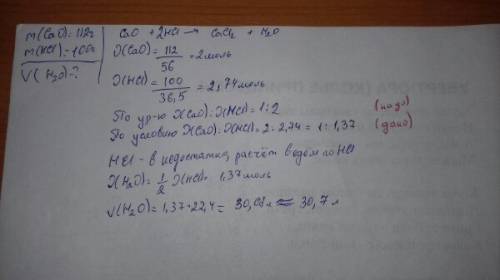 m(CaO)=112г
m(HCl)=100г
V(H₂O)-?
CaO + 2HCl → CaCl₂ + H₂O
ν(CaO)=112/56=2моль
ν(HCl)=100/36,5=2,74моль
По ур-ю ν(CaO):ν(HCl)=1:2 (надо)
По условию ν(CaO):ν(HCl)=2:2,74=1:1,37 (дано)
HCl - в недостатке, расчёт ведём по HCl
ν(H₂O)=1/2 ν(HCl)= 1,37моль
V(H₂O)=1,37·22,4= 30,68л ≈ 30,7л